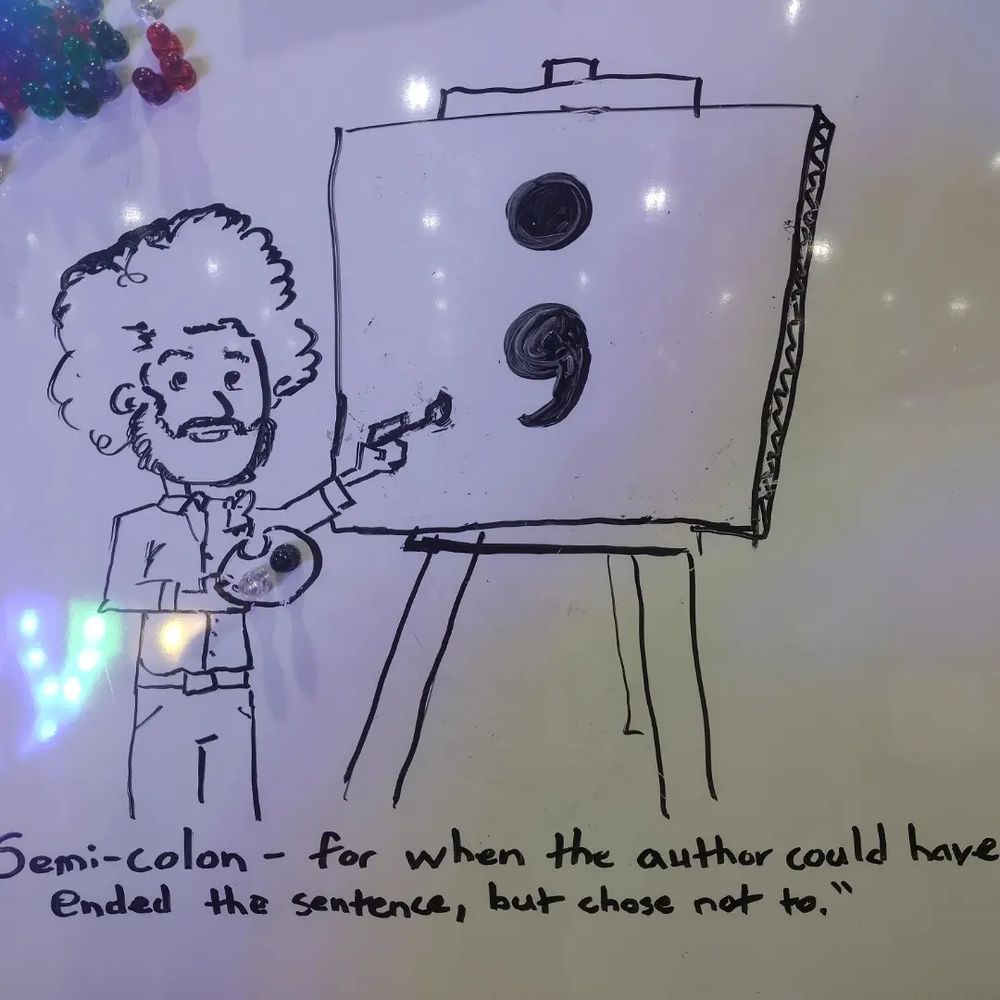 Semi-colon - for when the author could have
ended the sentence, but chose not to."